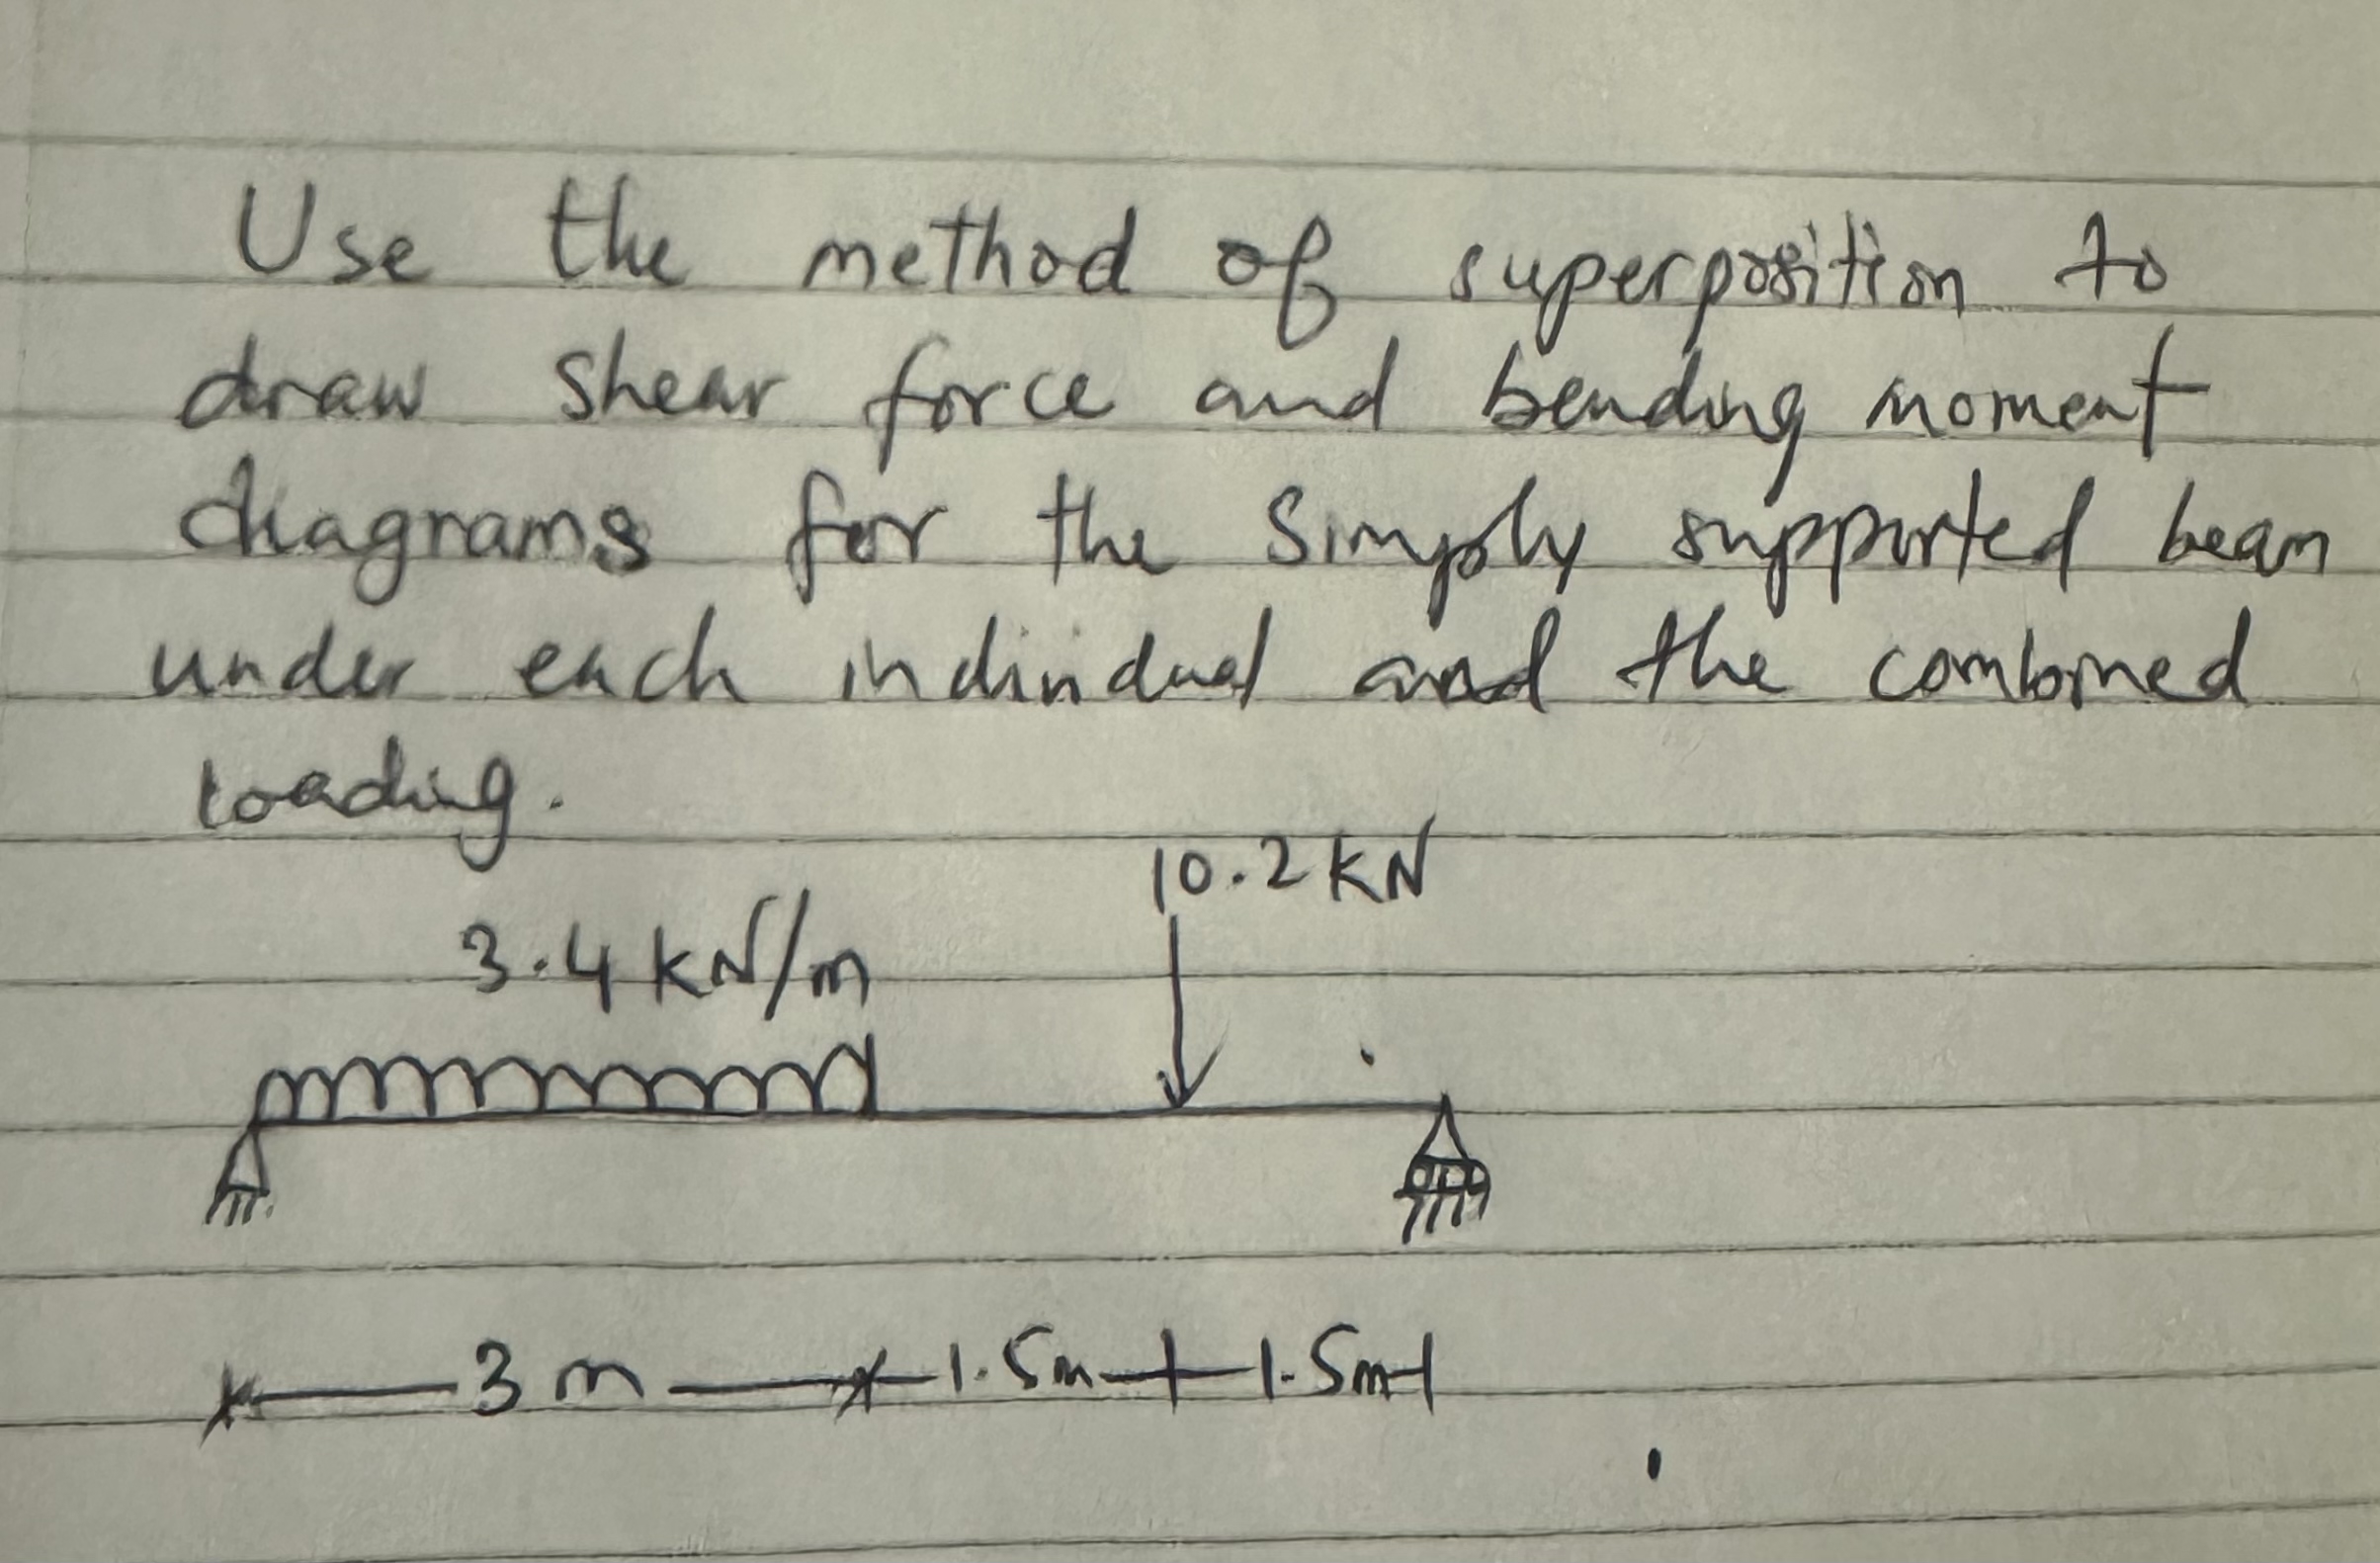 Use the method of superposition to
draw shear force and bending moment
diagrams for the simply supported beam
under each individual and the combined
loading.
10.2 kN
3.4 kN/m
3 m 1.5m 1.5m